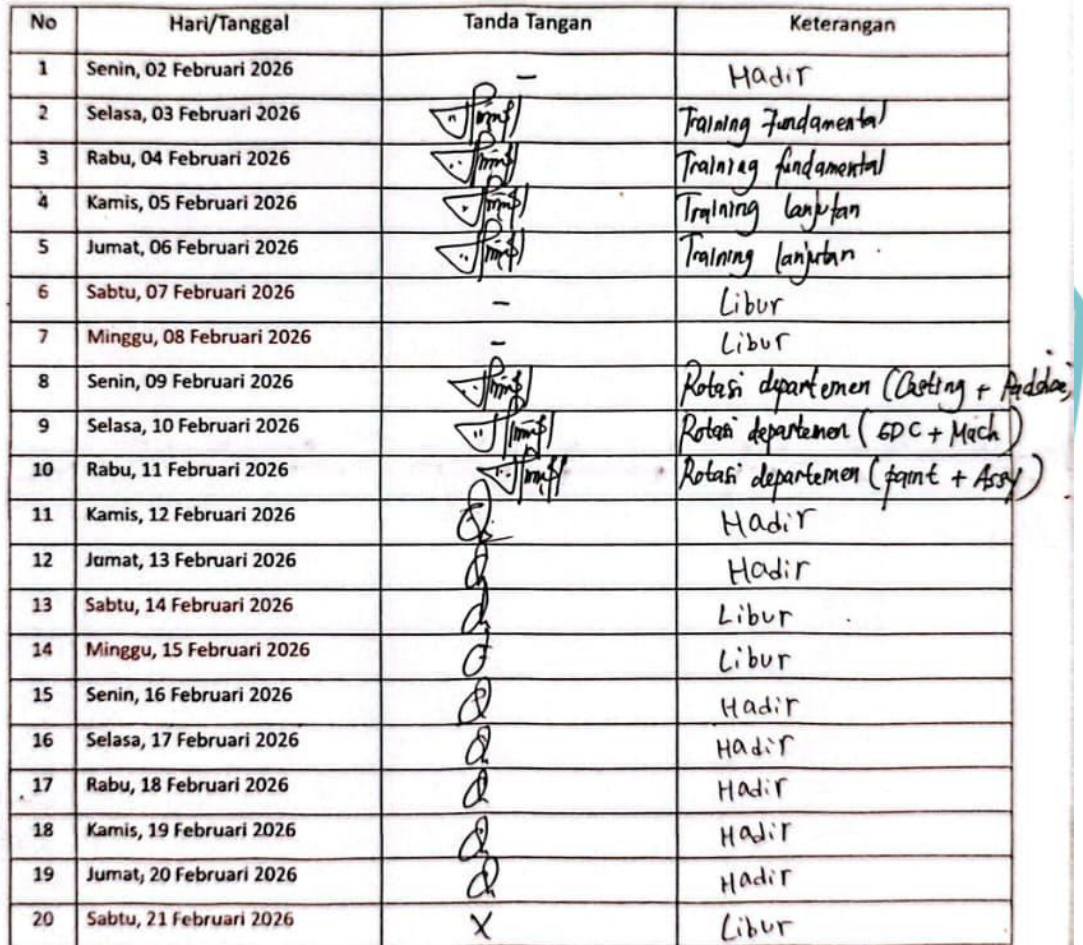 No Hari/Tanggal Tanda Tangan Keterangan
1 Senin, 02 Februari 2026 – Hadir
2 Selasa, 03 Februari 2026 Training Fundamental
3 Rabu, 04 Februari 2026 Training fundamental
4 Kamis, 05 Februari 2026 Training lanjutan
5 Jumat, 06 Februari 2026 Training lanjutan
6 Sabtu, 07 Februari 2026 – Libur
7 Minggu, 08 Februari 2026 – Libur
8 Senin, 09 Februari 2026 Rotasi departemen (Casting +
9 Selasa, 10 Februari 2026 Rotasi departemen ( GDC + Mach )
10 Rabu, 11 Februari 2026 Rotasi departemen (paint + Assy)
11 Kamis, 12 Februari 2026 Hadir
12 Jumat, 13 Februari 2026 Hadir
13 Sabtu, 14 Februari 2026 Libur
14 Minggu, 15 Februari 2026 Libur
15 Senin, 16 Februari 2026 Hadir
16 Selasa, 17 Februari 2026 Hadir
17 Rabu, 18 Februari 2026 Hadir
18 Kamis, 19 Februari 2026 Hadir
19 Jumat, 20 Februari 2026 Hadir
20 Sabtu, 21 Februari 2026 X Libur